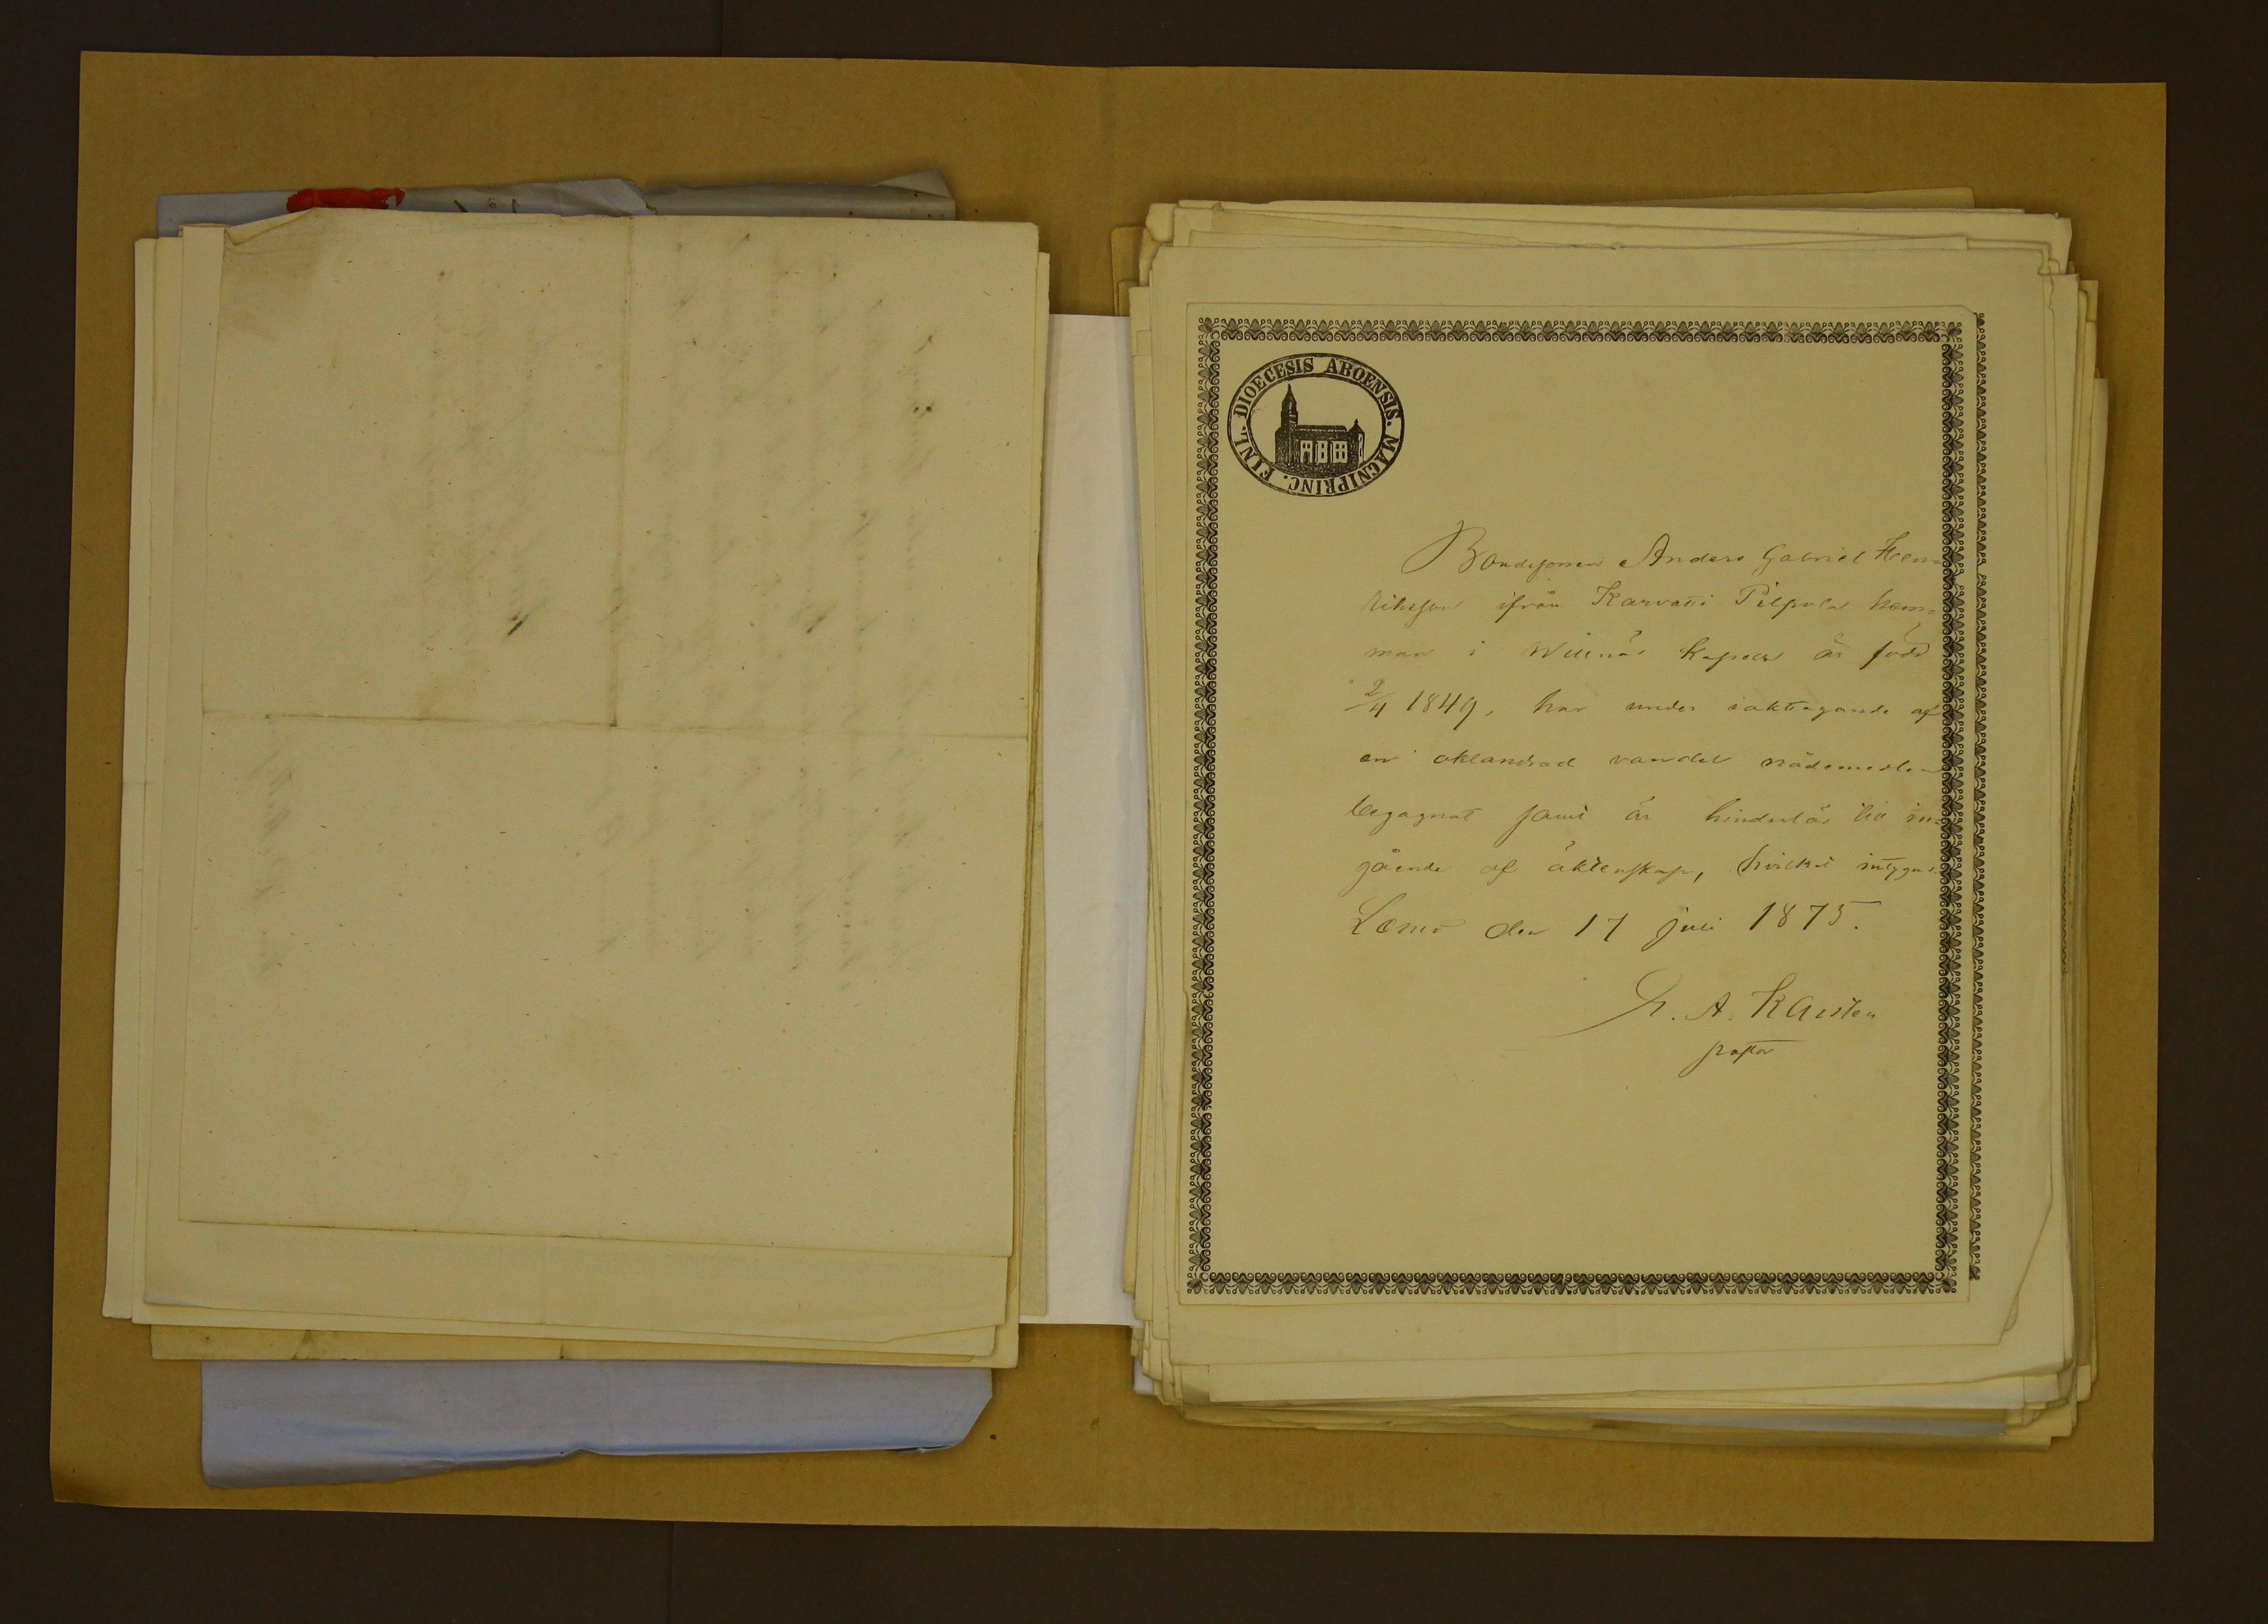 DIOECESIS ABOENSIS. MAGNIPRINC. FINL.
Bondesonen Anders Gabriel Hen
riksson ifrån Karvatti Pilpola hem=
man i Willnäs kapell är född
2/4 1849, har under iakttagande af
en oklandrad vandel nådemedlen
begagnat samt är hinderlös till in=
gående af äktenskap, hvilket intygas.
Lemo den 17 juli 1875.
A. Karsten
pastor